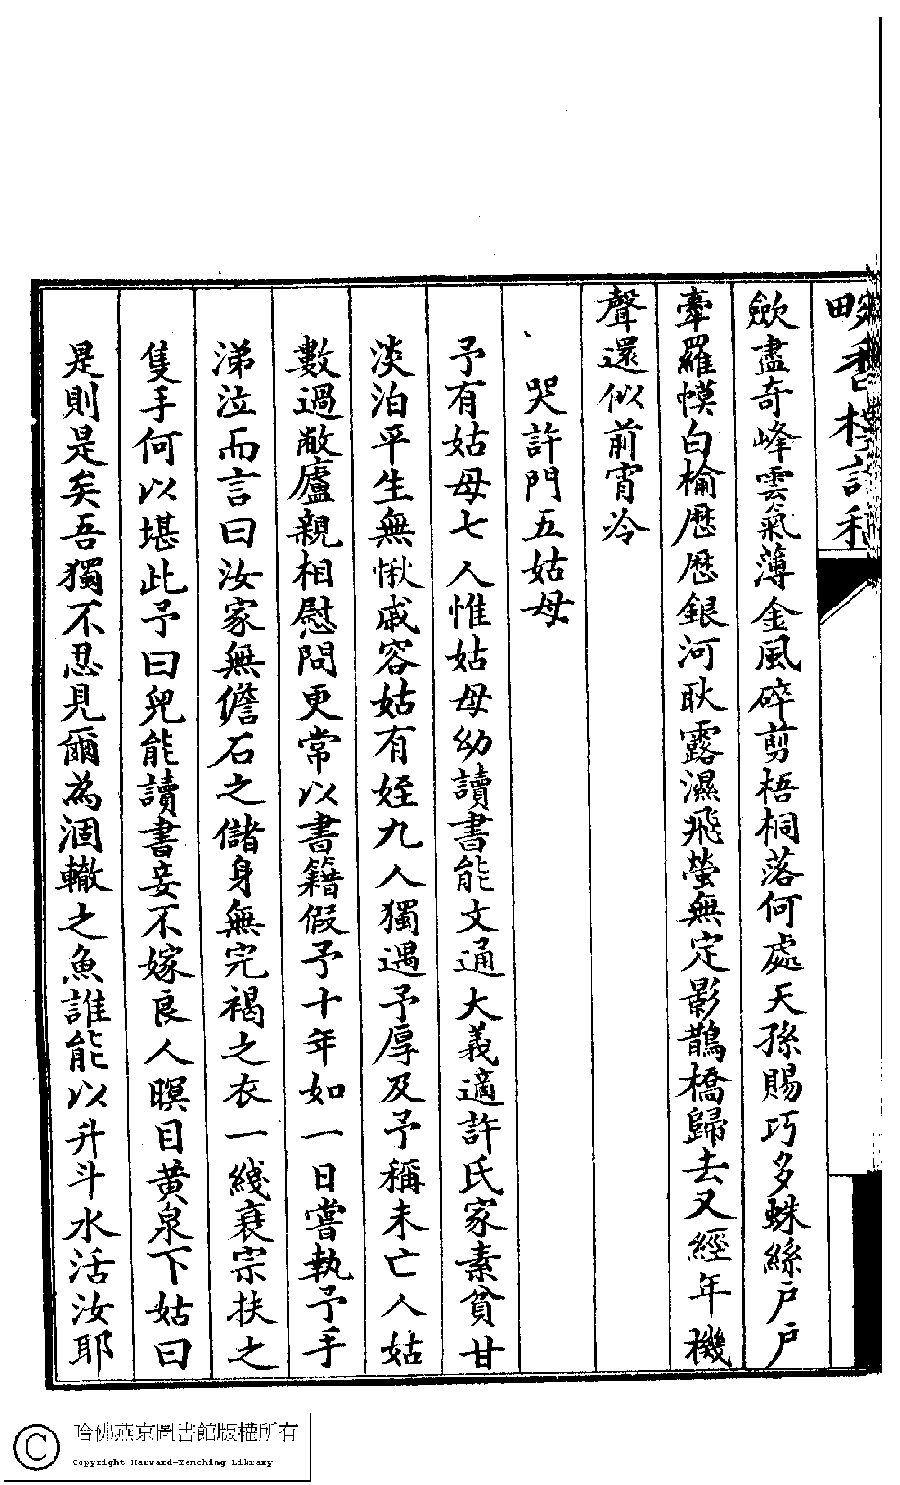 歛盡奇峰雲氣薄金風碎剪梧桐落何處天孫賜巧多蛛絲戶戶
牽羅幙白榆歷歷銀河耿露濕飛螢無定影鵲橋歸去又經年機
聲還似前宵冷
哭許門五姑母
予有姑母七人惟姑母幼讀書能文通大義適許氏家素貧甘
淡泊平生無愀戚容姑有姪九人獨遇予厚及予稱未亡人姑
數過敝廬親相慰問更常以書籍假予十年如一日嘗執予手
涕泣而言曰汝家無儋石之儲身無完褐之衣一綫衰宗扶之
隻手何以堪此予曰兒能讀書妾不嫁良人瞑目黄泉下姑曰
是則是矣吾獨不忍見爾為涸轍之魚誰能以升斗水活汝耶
哈佛燕京圖書館版權所有
Copyright Harvard-Yenching Library